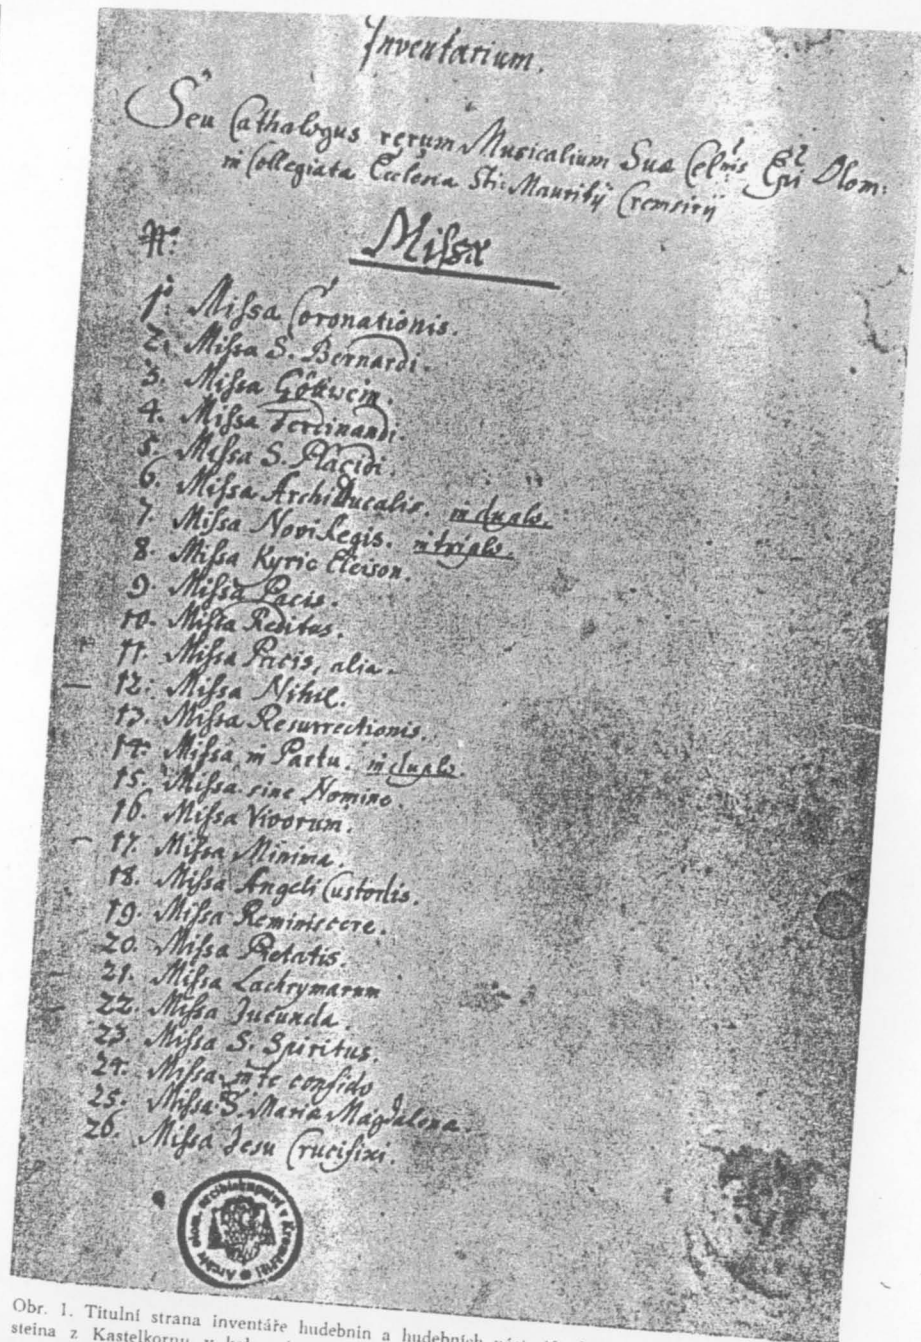 Inventarium.
Seu Cathalogus rerum Musicalium Suæ Cel:nis Epi Olom:
in Collegiata Ecclesia Sti: Mauritij Cremsirij
Nr:
Missæ
1. Missa Coronationis.
2. Missa S. Bernardi.
3. Missa Göttwein.
4. Missa Ferdinandi.
5. Missa S. Placidi.
6. Missa Archiducalis. in duplo.
7. Missa Novi Regis. in triplo.
8. Missa Kyrie Eleison.
9. Missa Pacis.
10. Missa Reditus.
11. Missa Pacis, alia.
12. Missa Nihil.
13. Missa Resurrectionis.
14. Missa in Partu. in duplo.
15. Missa sine Nomine.
16. Missa Vivorum.
17. Missa Minima.
18. Missa Angeli Custodis.
19. Missa Reminiscere.
20. Missa Pietatis.
21. Missa Lachrymarum
22. Missa Jucunda.
23. Missa S. Spiritus.
24. Missa in te confido
25. Missa S. Maria Magdalena.
26. Missa Jesu Crucifixi.
Obr. 1. Titulní strana inventáře hudebnin a hudebních
steina z Kastelkornu v